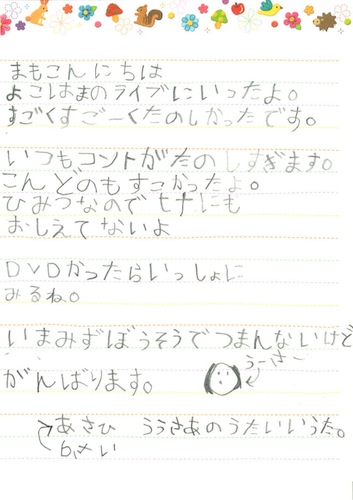 まもこんにちは
よこしはまのライブにいったよ。
すごくすごーくたのしかったです。
いつもコントがたのしすぎます。
こんどのもすごかったよ。
ひみつなので ナにも
おしえてないよ
DVDかったらいっしょに
みるね。
いまみずぼうそうでつまんないけど
うーさー
がんばります。
あさひ ううさあのうたいいうた。
6さい